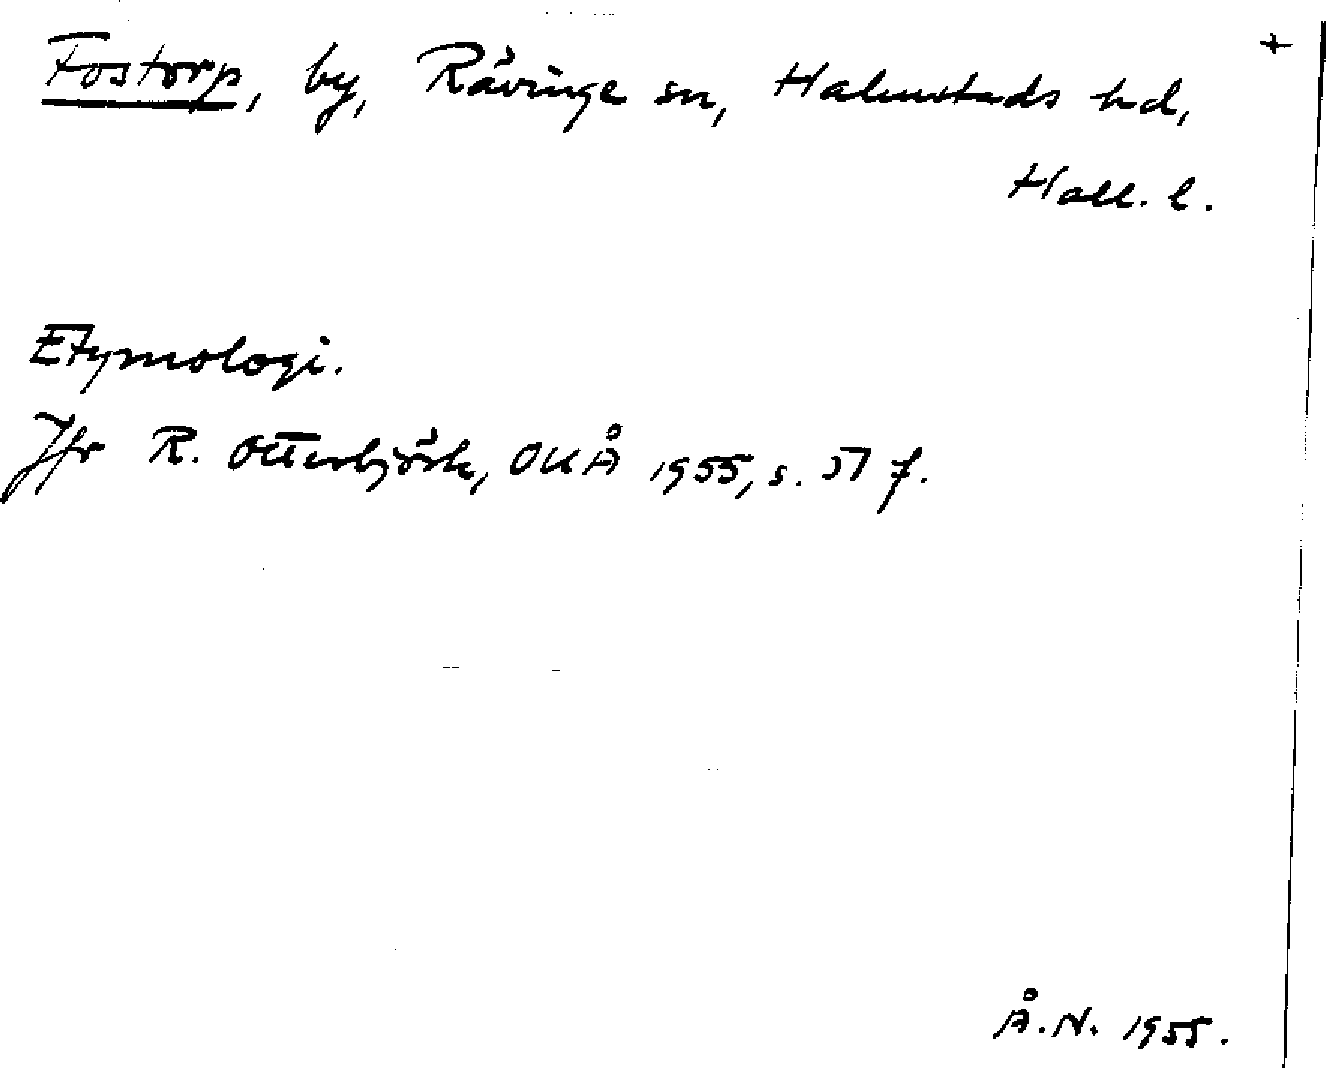 Fostorp, by, Rävinge sn, Halmstads hd, +
Hall. l.
Etymologi.
Jfr R. Otterbjörk, OUÅ 1955, s. 57 f.
Å.N. 1955.